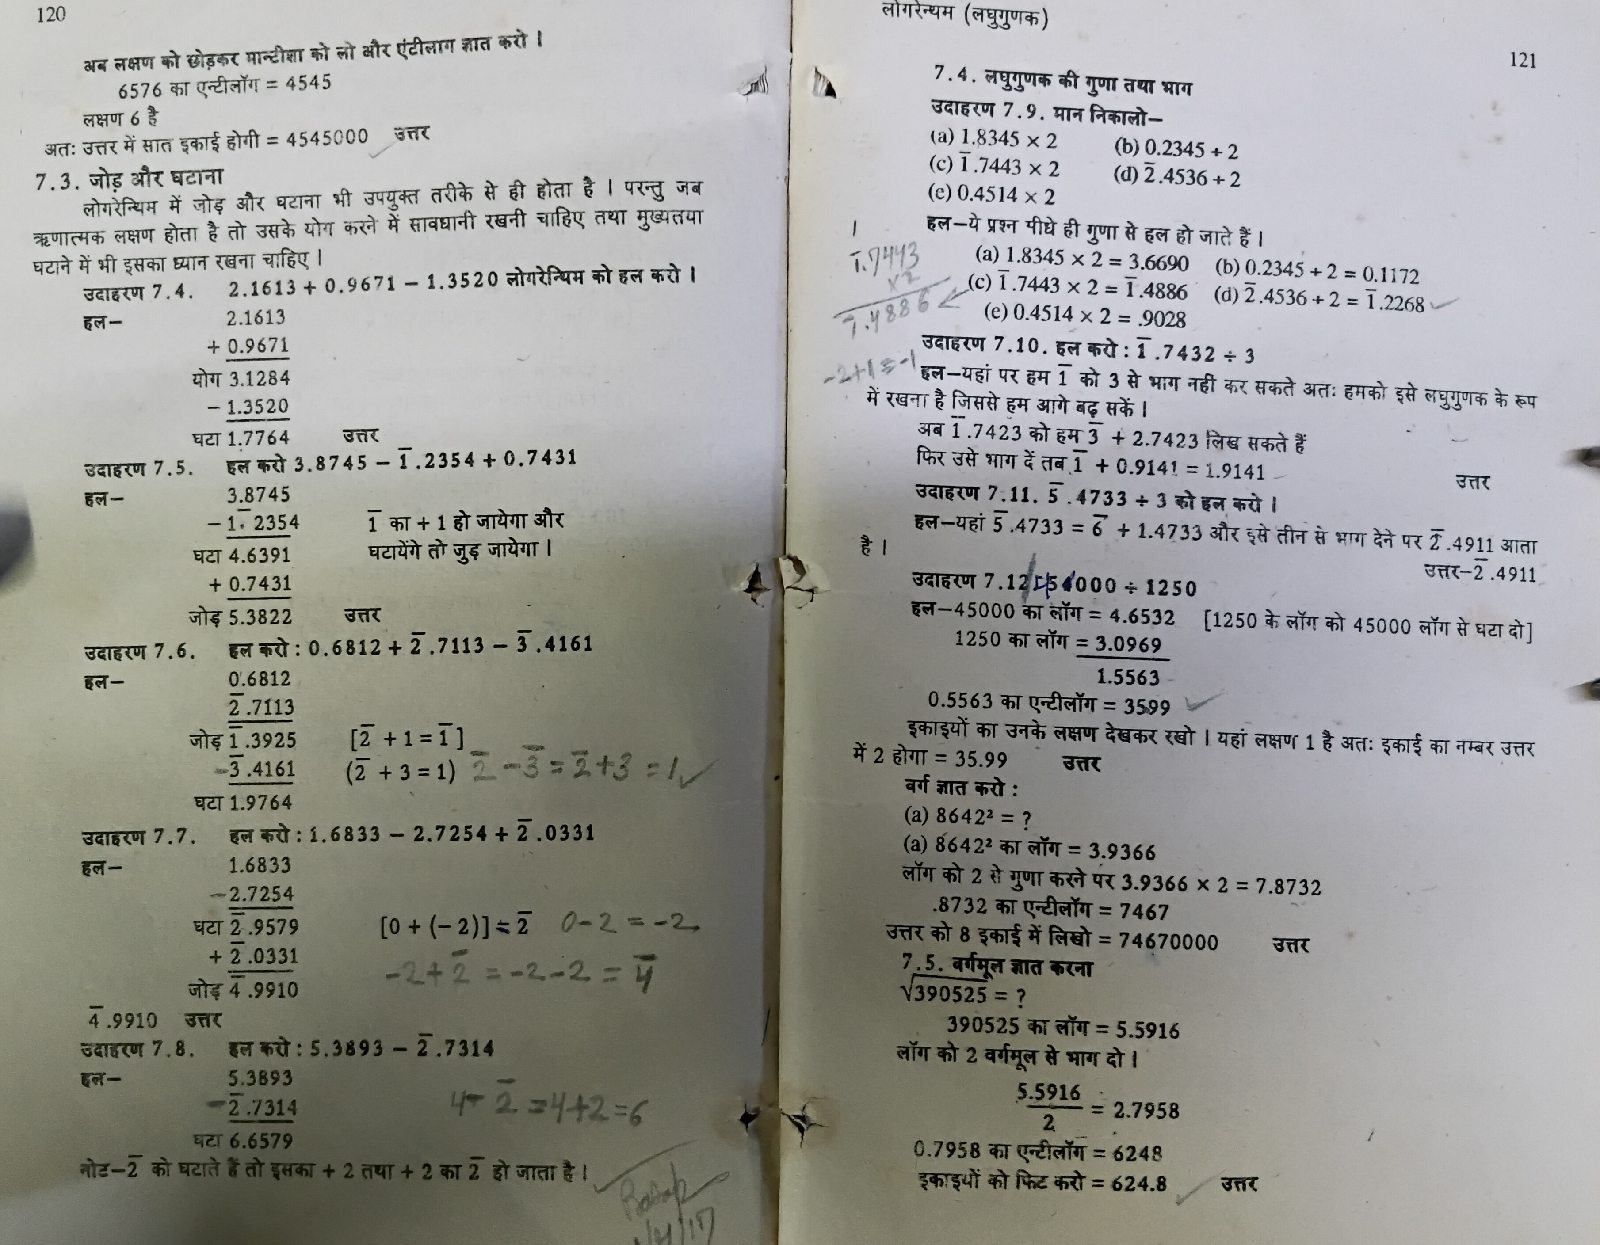 120
अब लक्षण को छोड़कर मान्टीसा को लो और एंटीलाग ज्ञात करो ।
6576 का एन्टीलॉग = 4545
लक्षण 6 है
अतः उत्तर में सात इकाई होगी = 4545000 उत्तर
7.3. जोड़ और घटाना
लोगरेन्थिम में जोड़ और घटाना भी उपयुक्त तरीके से ही होता है । परन्तु जब
ऋणात्मक लक्षण होता है तो उसके योग करने में सावधानी रखनी चाहिए तथा मुख्यतया
घटाने में भी इसका ध्यान रखना चाहिए ।
उदाहरण 7.4. 2.1613 + 0.9671 − 1.3520 लोगरेन्थिम को हल करो ।
हल− 2.1613
+ 0.9671
योग 3.1284
− 1.3520
घटा 1.7764 उत्तर
उदाहरण 7.5. हल करो 3.8745 − 1̅.2354 + 0.7431
हल− 3.8745
− 1̅.2354 1̅ का + 1 हो जायेगा और
घटा 4.6391 घटायेंगे तो जुड़ जायेगा ।
+ 0.7431
जोड़ 5.3822 उत्तर
उदाहरण 7.6. हल करो : 0.6812 + 2̅.7113 − 3̅.4161
हल− 0.6812
2̅.7113
जोड़ 1̅.3925 [2̅ + 1 = 1̅]
-3̅.4161 (2̅ + 3 = 1) 2̅ − 3̅ = 2̅ + 3 = 1
घटा 1.9764
उदाहरण 7.7. हल करो : 1.6833 − 2.7254 + 2̅.0331
हल− 1.6833
−2.7254
घटा 2̅.9579 [0 + (− 2)] = 2̅ 0 − 2 = −2
+ 2̅.0331
−2 + 2̅ = −2 −2 = 4̅
जोड़ 4̅.9910
4̅.9910 उत्तर
उदाहरण 7.8. हल करो : 5.3893 − 2̅.7314
हल− 5.3893
−2̅.7314 4 − 2̅ = 4+2 = 6
घटा 6.6579
नोट−2̅ को घटाते हैं तो इसका + 2 तथा + 2 का 2̅ हो जाता है ।
लोगरेन्थम (लघुगुणक)
121
7.4. लघुगुणक की गुणा तथा भाग
उदाहरण 7.9. मान निकालो−
(a) 1.8345 × 2 (b) 0.2345 ÷ 2
(c) 1̅.7443 × 2 (d) 2̅.4536 ÷ 2
(e) 0.4514 × 2
हल−ये प्रश्न पीधे ही गुणा से हल हो जाते हैं ।
(a) 1.8345 × 2 = 3.6690 (b) 0.2345 ÷ 2 = 0.1172
(c) 1̅.7443 × 2 = 1̅.4886 (d) 2̅.4536 ÷ 2 = 1̅.2268
(e) 0.4514 × 2 = .9028
1
1̅.7443
×2
1̅.4886
−2+1 = −1
उदाहरण 7.10. हल करो : 1̅.7432 ÷ 3
हल−यहां पर हम 1̅ को 3 से भाग नहीं कर सकते अतः हमको इसे लघुगुणक के रूप
में रखना है जिससे हम आगे बढ़ सकें ।
अब 1̅.7423 को हम 3̅ + 2.7423 लिख सकते हैं
फिर उसे भाग दें तब 1̅ + 0.9141 = 1.9141 उत्तर
उदाहरण 7.11. 5̅.4733 ÷ 3 को हल करो ।
हल−यहां 5̅.4733 = 6̅ + 1.4733 और इसे तीन से भाग देने पर 2̅.4911 आता
है । उत्तर−2̅.4911
उदाहरण 7.12 000 ÷ 1250
हल−45000 का लॉग = 4.6532 [1250 के लॉग को 45000 लॉग से घटा दो]
1250 का लॉग = 3.0969
1.5563
0.5563 का एन्टीलॉग = 3599
इकाइयों का उनके लक्षण देखकर रखो । यहां लक्षण 1 है अतः इकाई का नम्बर उत्तर
में 2 होगा = 35.99 उत्तर
वर्ग ज्ञात करो :
(a) 8642² = ?
(a) 8642² का लॉग = 3.9366
लॉग को 2 से गुणा करने पर 3.9366 × 2 = 7.8732
.8732 का एन्टीलॉग = 7467
उत्तर को 8 इकाई में लिखो = 74670000 उत्तर
7.5. वर्गमूल ज्ञात करना
√390525 = ?
390525 का लॉग = 5.5916
लॉग को 2 वर्गमूल से भाग दो ।
5.5916
2
= 2.7958
0.7958 का एन्टीलॉग = 6248
इकाइयों को फिट करो = 624.8 उत्तर